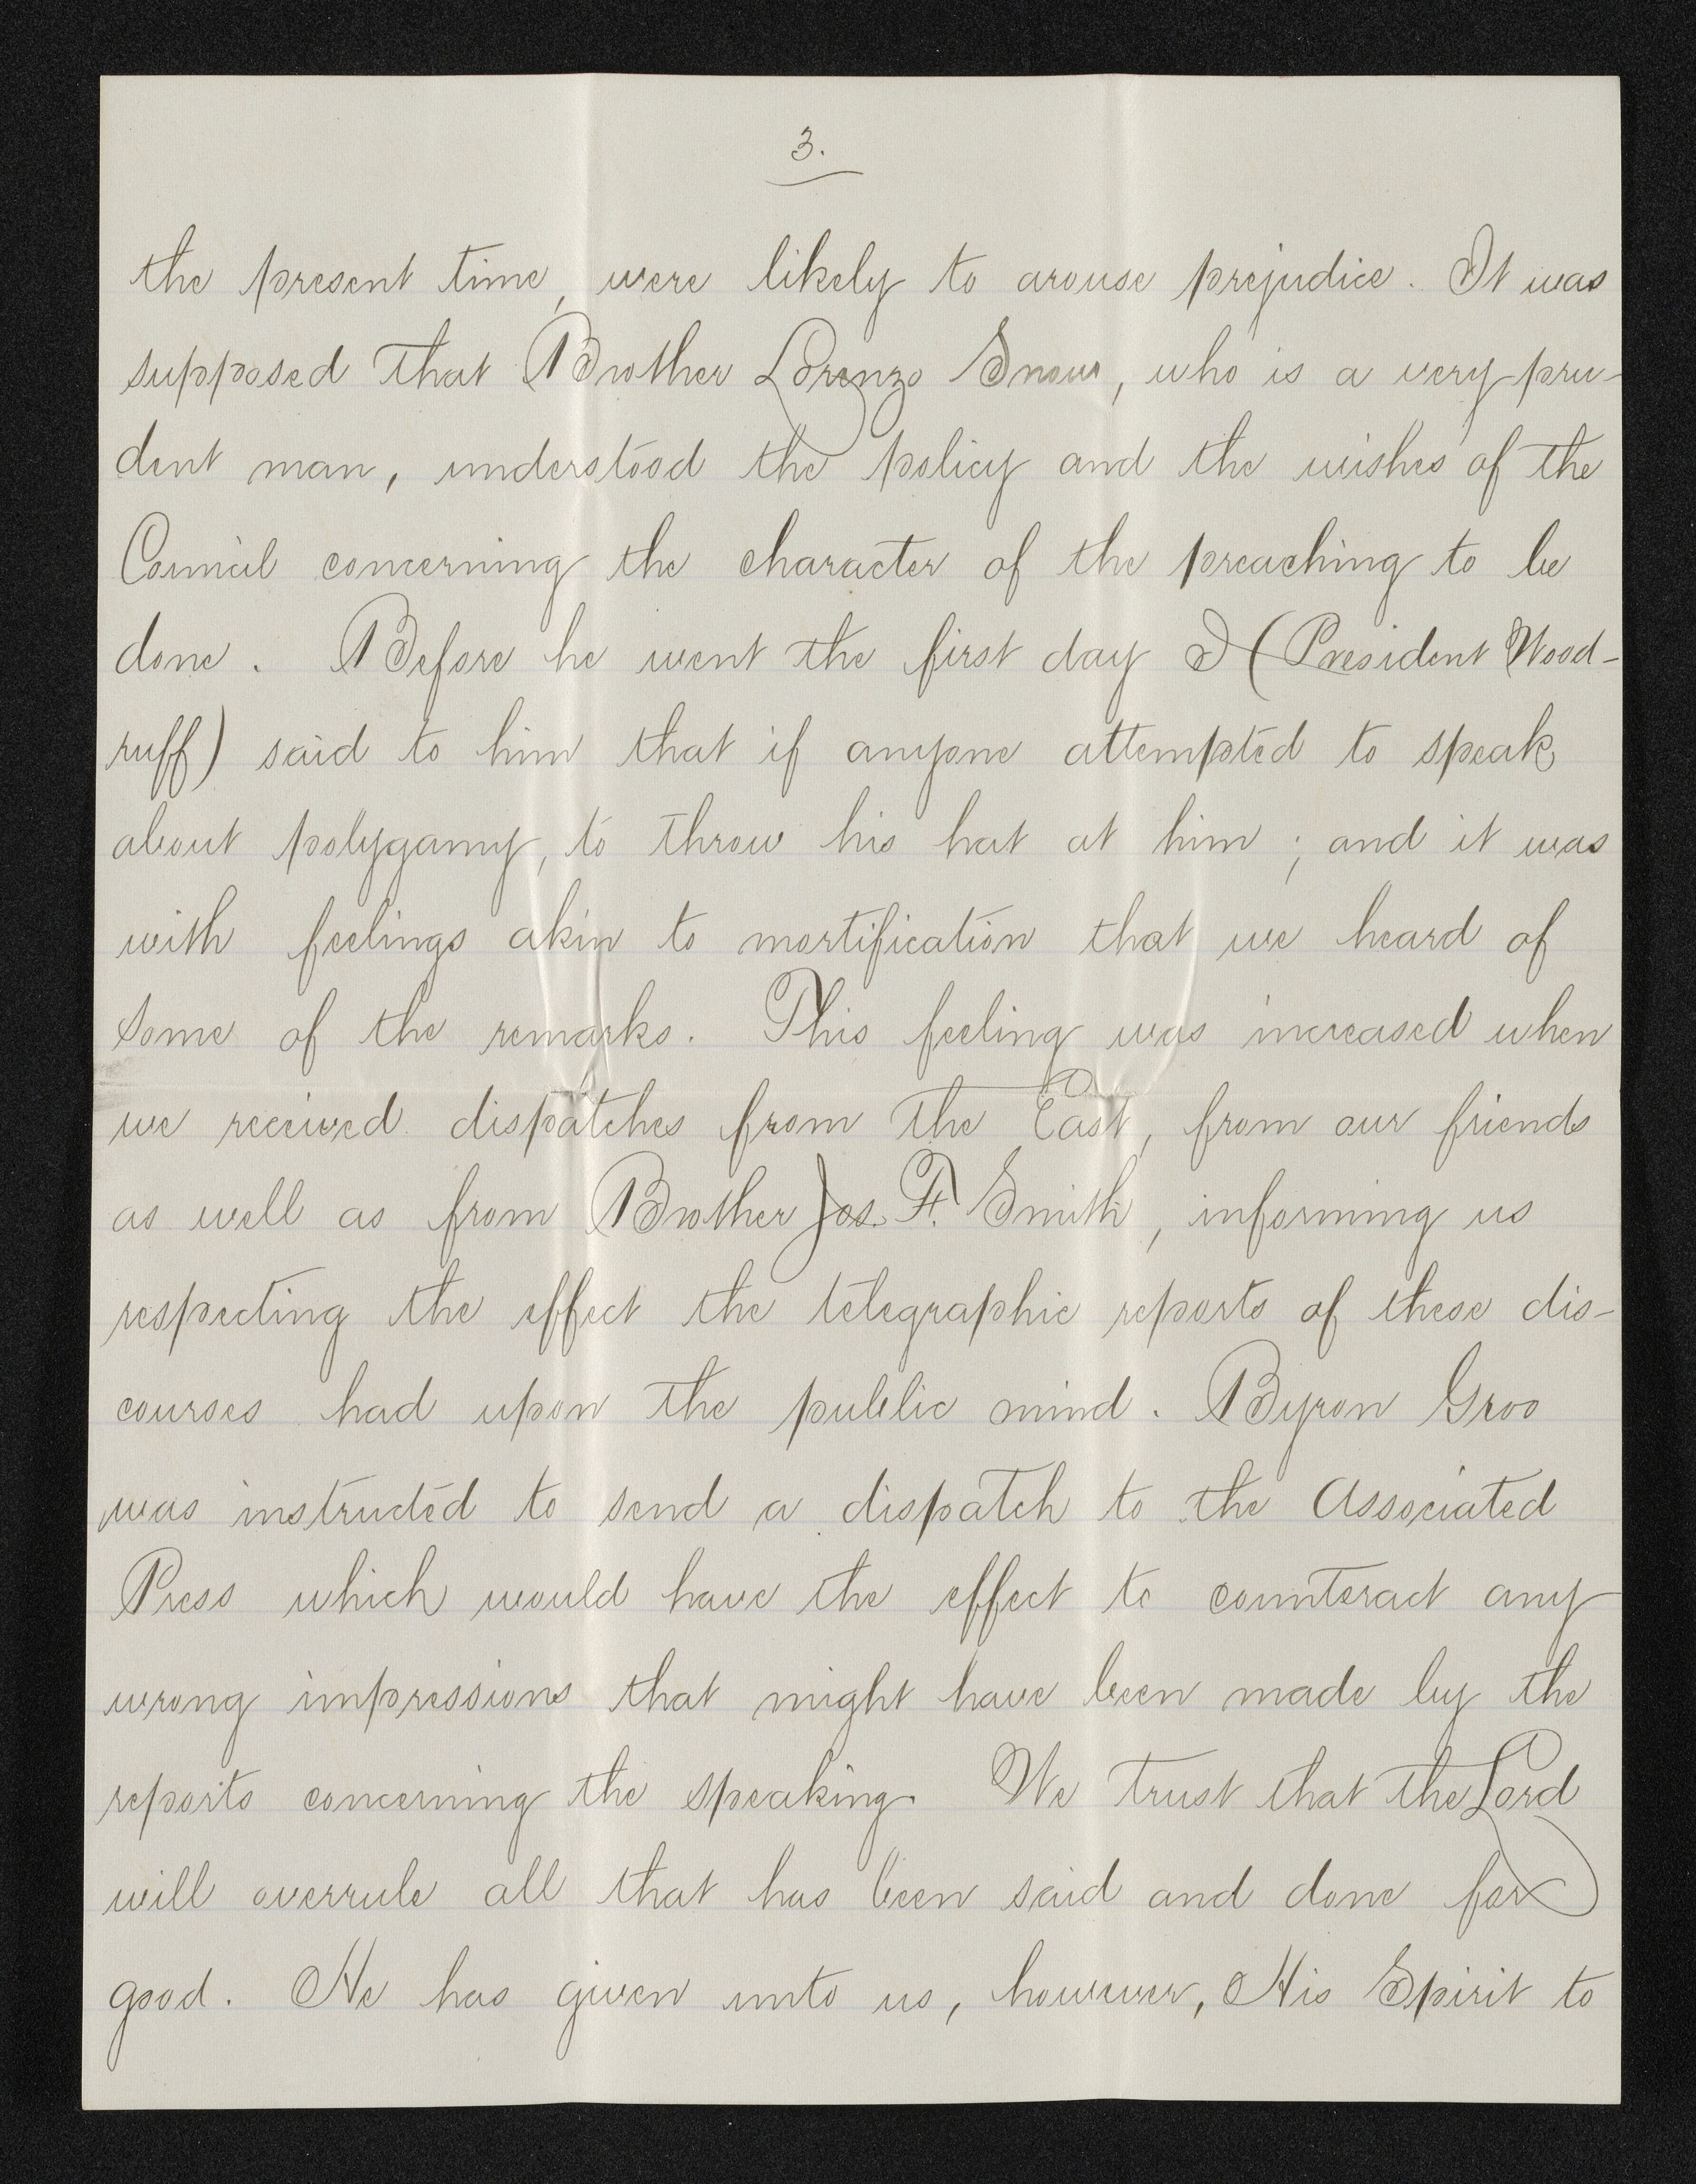 3.
the present time, were likely to arouse prejudice. It was
supposed that Brother Lorenzo Snow, who is a very pru-
dent man, understood the policy and the wishes of the
Council concerning the character of the preaching to be
done. Before he went the first day I (President Wood-
ruff) said to him that if anyone attempted to speak
about polygamy, to throw his hat at him; and it was
with feelings akin to mortification that we heard of
some of the remarks. This feeling was increased when
we received dispatches from the East, from our friends
as well as from Brother Jos. F. Smith, informing us
respecting the effect the telegraphic reports of these dis-
courses had upon the public mind. Byron Groo
was instructed to send a dispatch to the Associated
Press which would have the effect to counteract any
wrong impressions that might have been made by the
reports concerning the speaking. We trust that the Lord
will overrule all that has been said and done for
good. He has given unto us, however, His Spirit to